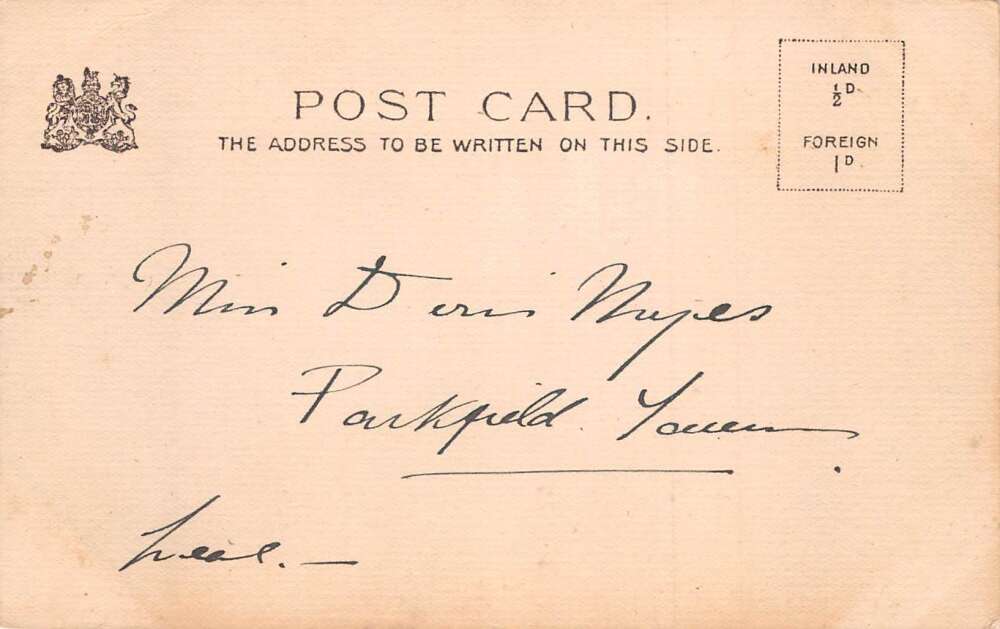 POST CARD.
THE ADDRESS TO BE WRITTEN ON THIS SIDE.
INLAND
½D.
FOREIGN
1D.
Miss Doris
Parkfield.